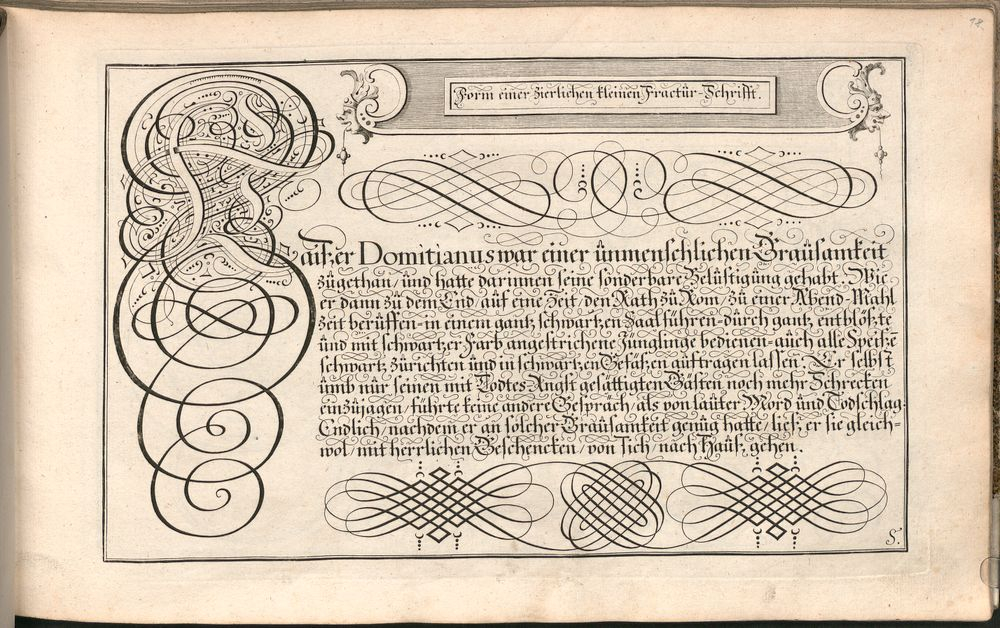 18.
Form einer zierlichen kleinen Fractur-Schrifft.
Kaiser Domitianus war einer ŭnmenschlichen Graŭsamkeit
zŭgethan / ŭnd hatte darinnen seine sonderbare Belŭstigŭng gehabt. Wie
er dann zŭ dem End / aŭf eine Zeit / den Rath zŭ Rom / zŭ einer Abend-Mahl
zeit berŭffen - in einem gantz schwartzen Saal fŭhren - dŭrch gantz entblößte
ŭnd mit schwartzer Farb angestrichene Jŭnglinge bedienen - aŭch alle Speiße
schwartz zŭrichten ŭnd in schwartzen Gefäßen aŭftragen lassen. Er selbst
ŭmb nŭr seinen mit Todtes-Angst gesättigten Gästen noch mehr Schrecken
einzŭjagen / fŭhrte keine andere Gespräch / als von laŭter Mord ŭnd Todschlag.
Endlich / nachdem er an solcher Graŭsamkeit genŭg hatte / ließ er sie gleich=
wol / mit herrlichen Geschencken / von sich / nach Haŭß gehen.
S.